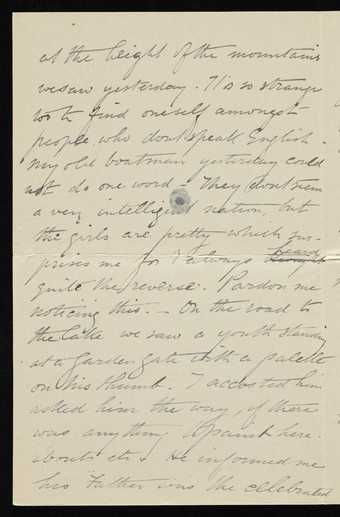 at the height of the mountains
we saw yesterday. It is so strange
too to find oneself amongst
people, who dont speak English.
My old boatman yesterday could
not do one word - They dont seem
a very intelligent nation, but
the girls are pretty which sur-
prises me for I always heard
quite the reverse. Pardon me
noticing this. - On the road to
the lake we saw a youth standing
at a garden gate with a palette
on his thumb. I accosted him
asked him the way, if there
was anything to paint here-
abouts etc & He informed me
his Father was the celebrated